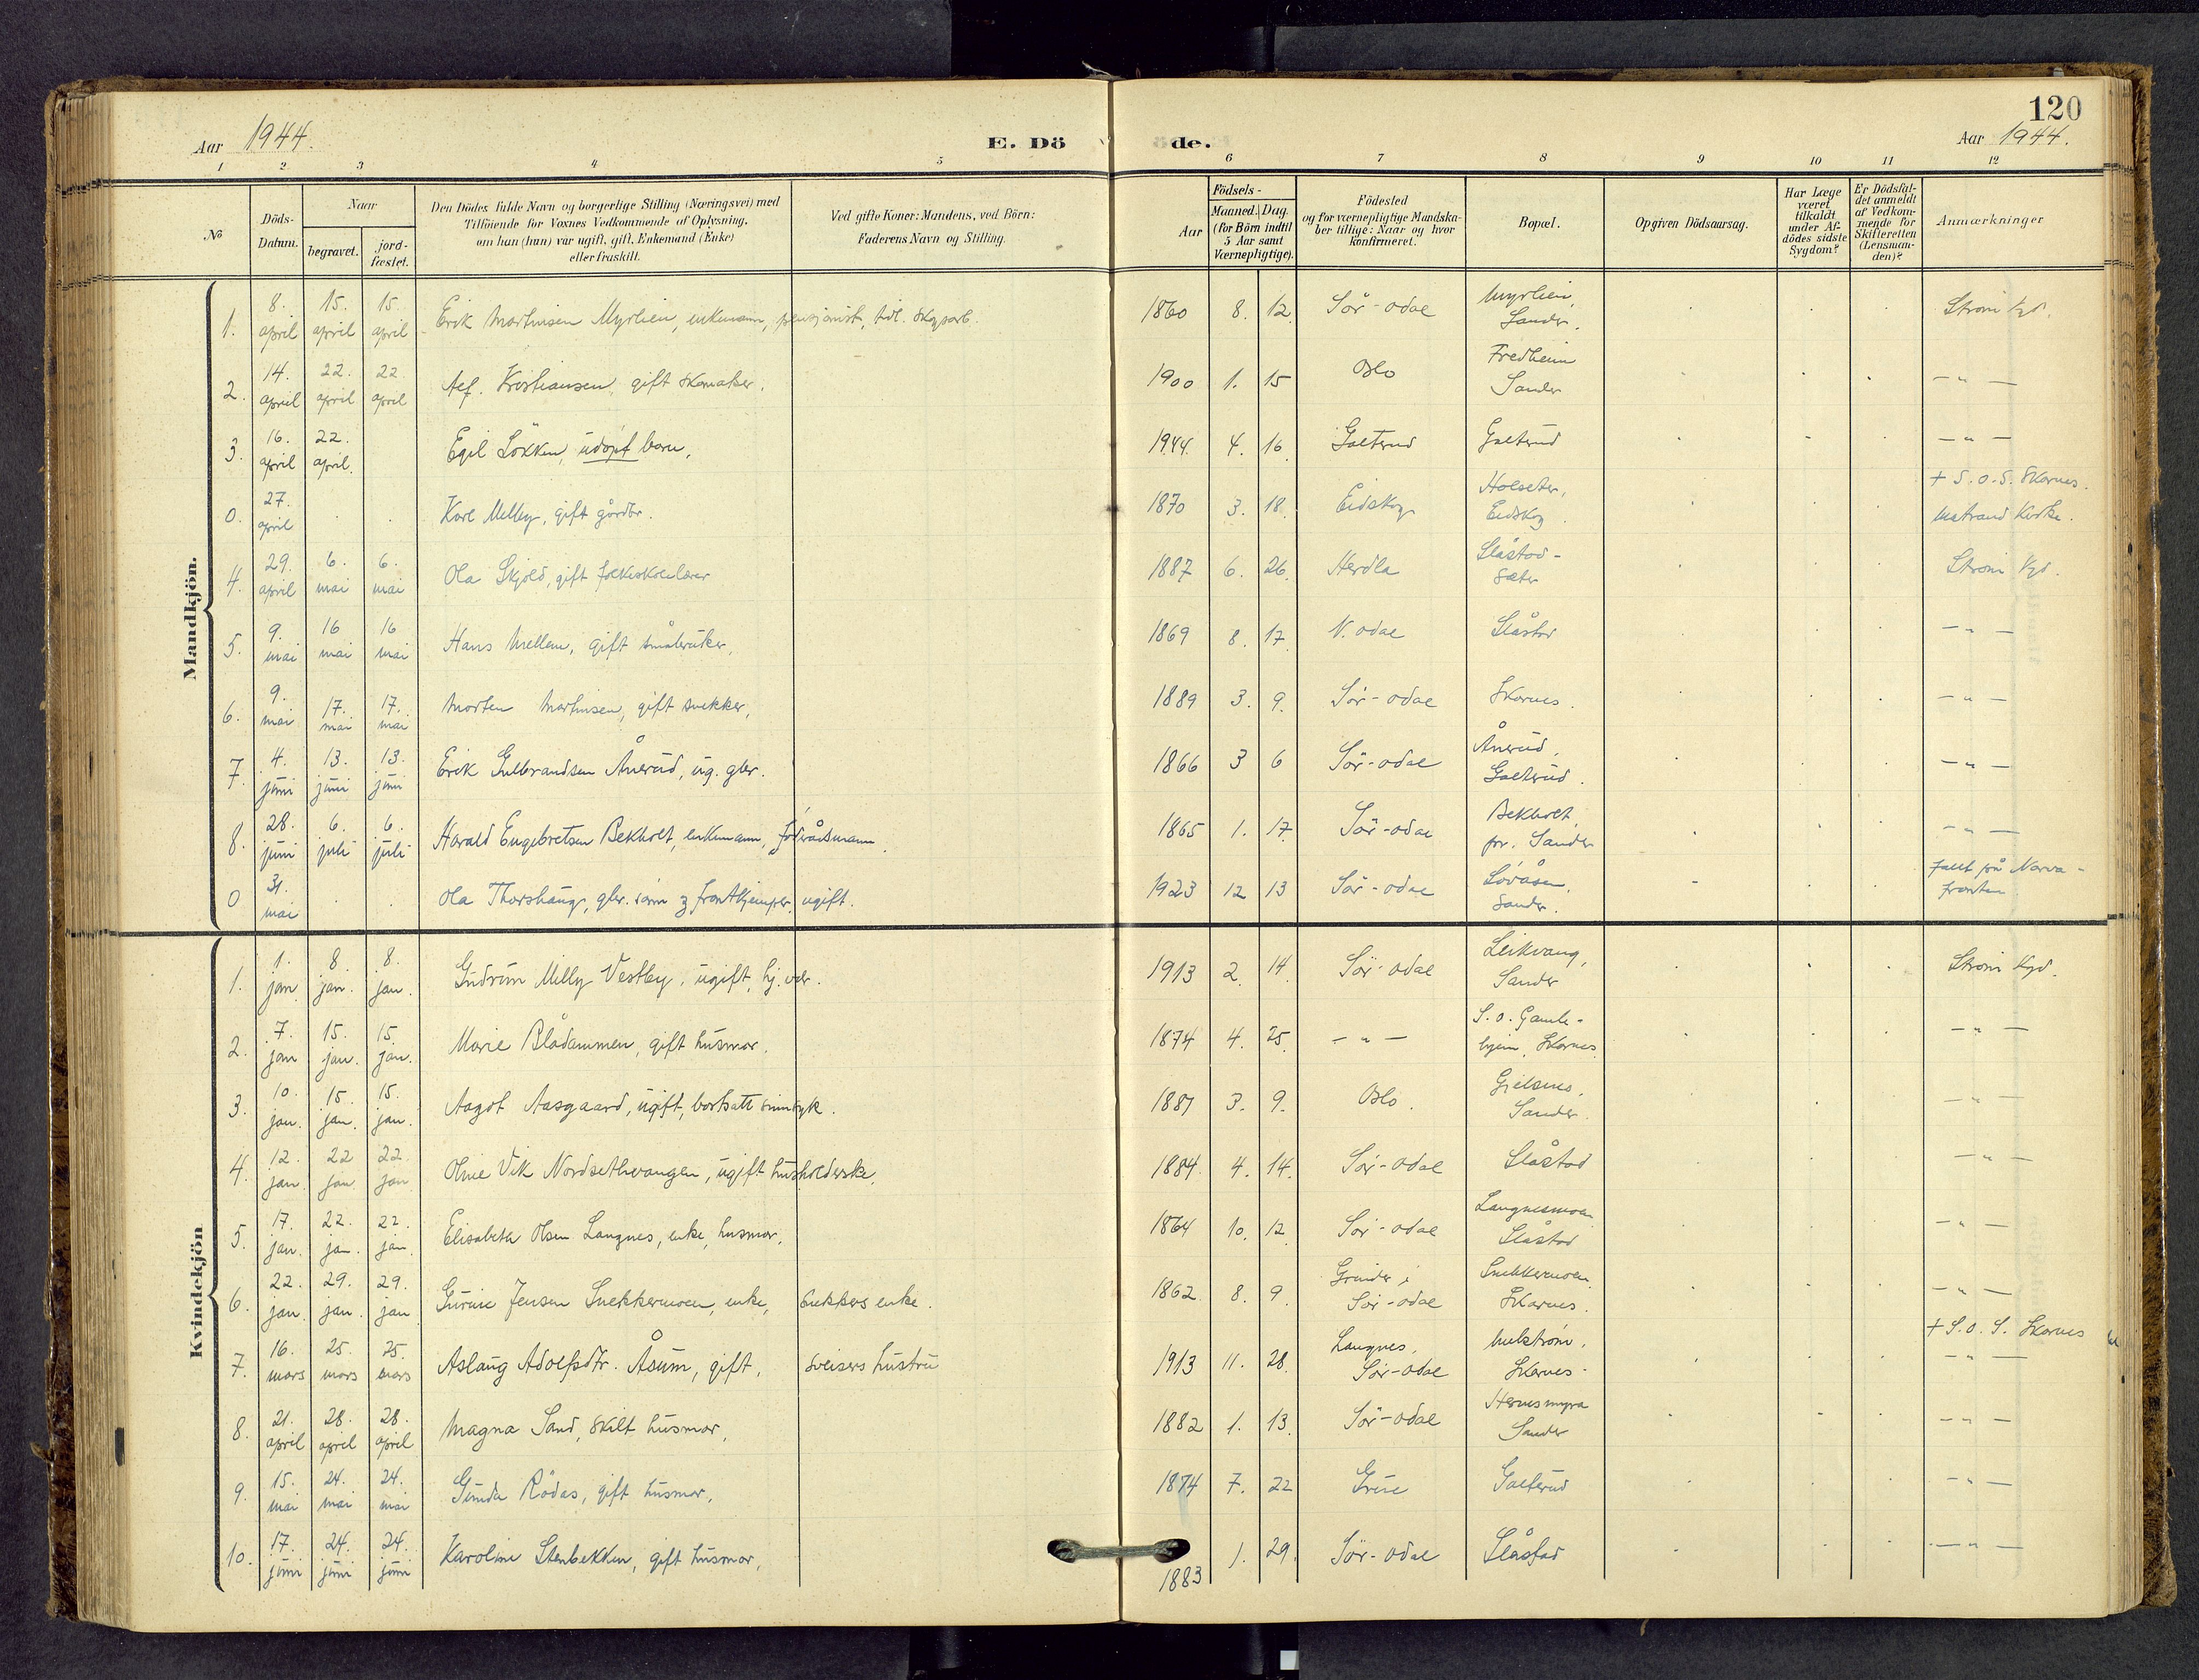 120
Aar 1944.
E. Dö de.
Aar 1944.
1 2 3 4 5 6 7 8 9 10 11 12
No
Döds-Datum.
Naar
begravet.
jord-fæstet.
Den Dödes fulde Navn og borgerlige Stilling (Næringsvei) med
Tilföiende for Voxnes Vedkommende af Oplysning,
om han (hun) var ugift, gift, Enkemand (Enke)
eller fraskilt.
Ved gifte Koner: Mandens, ved Börn:
Faderens Navn og Stilling.
Födsels-
Aar
Maaned. Dag.
(for Börn indtil
5 Aar samt
Værnepligtige).
Födested
og for værnepligtige Mandska-
ber tillige: Naar og hvor
konfirmeret.
Bopæl.
Opgiven Dödsaarsag.
Har Læge
været
tilkaldt
under Af-
dödes sidste
Sygdom?
Er Dödsfal-
det anmeldt
af Vedkom-
mende for
Skifteretten
(Lensman-
den)?
Anmærkninger
Mandkjön.
1. 8. april 15. april 15 april Erik Martinsen Myrlien, enkmann, pensjonist, tidl. skogsarb. 1860 8. 12. Sör-Odal Myrlien, Sander. Strøm kgd.
2. 14. april 22. april 22 april Alf. Kristiansen, gift skomaker. 1900 1. 15 Oslo Fredheim Sander -"-
3. 16. april 22. april. Egil Lökken, udöpt barn. 1944. 4. 16. Galterud Galterud -"-
0. 27. april Karl Melby, gift gårdbr. 1870 3. 18. Eidskog Holseter, Eidskog. + S.O.S. Skarnes. Matrand kirke.
4. 29. april 6. mai 6. mai Ola Skjold, gift folkeskolelærer 1887 6. 26. Herdla Slåstad-sæter Strøm kgd.
5. 9. mai 16 mai 16 mai Hans Mellem, gift småbruker. 1869 8. 17. N. Odal Slåstad -"-
6. 9. mai 17. mai 17. mai Morten Martinsen, gift snekker, 1889 3. 9. Sör-Odal Skarnes. -"-
7. 4. juni 13. juni 13. juni Erik Gulbrandsen Ånerud, ug. gbr. 1866 3 6 Sör-Odal Ånerud, Galterud. -"-
8. 28. juni 6. juli 6. juli Harald Engebretsen Bekholt, enkemann, födrådsmann. 1865 1. 17. Sör-Odal Bekholt, pr. Sander -"-
0 31. mai Ola Thorshaug, gbr. sönn & frontkjemper, ugift. 1923 12 13 Sör-Odal Lövåsen, Sander. Falt på Narva-fronten
Kvindekjön
1. 1. jan. 8 jan. 8. jan. Gudrun Milly Vestby, ugift, hj.vær. 1913 2. 14. Sör-Odal Leikvang, Sander Strøm kgd.
2. 7. jan 15. jan. 15. jan. Marie Blådammen, gift husmor. 1874 4. 25. -"- S.O. Gamle-hjem, Skarnes -"-
3. 10. jan. 15. jan. 15. jan. Aagot Aasgaard, ugift, bortsatt sinnsyk. 1887 3. 9. Oslo. Gjelsnes, Sander. -"-
4. 12. jan. 22 jan. 22. jan Oline Vik Nordsethvangen, ugift husholderske. 1884. 4. 14. Sör-Odal Slåstad -"-
5. 17. jan. 22. jan. 22. jan. Elisabeth Olsen Langnes, enke, husmor. 1864 10. 12. Sör-Odal Langnesmoen Slåstad -"-
6. 22. jan 29. jan. 29. jan Gurine Jensen Snekkermoen, enke, snekkers enke. 1862 8. 9. Grinder i Sör-Odal Snekkermoen, Skarnes. -"-
7. 16. mars 25. mars 25. mars Aslaug Adolfsdtr. Åsum, gift, sveisers hustru 1913 11. 28. Langnes, Sör-Odal Melström, Skarnes. + S.O.S. Skarnes -"-
8. 21. april 28. april 28. april Magna Sand, skilt husmor, 1882 1. 13. Sör-Odal Hernesmyra Sander -"-
9. 15. mai 24. mai 24. mai Gunda Rödas, gift husmor, 1874 7. 22 Grue Galterud -"-
10. 17. juni 24. juni 24. juni Karoline Stenbekken, gift husmor, 1883 1. 29. Sör-Odal Slåstad -"-